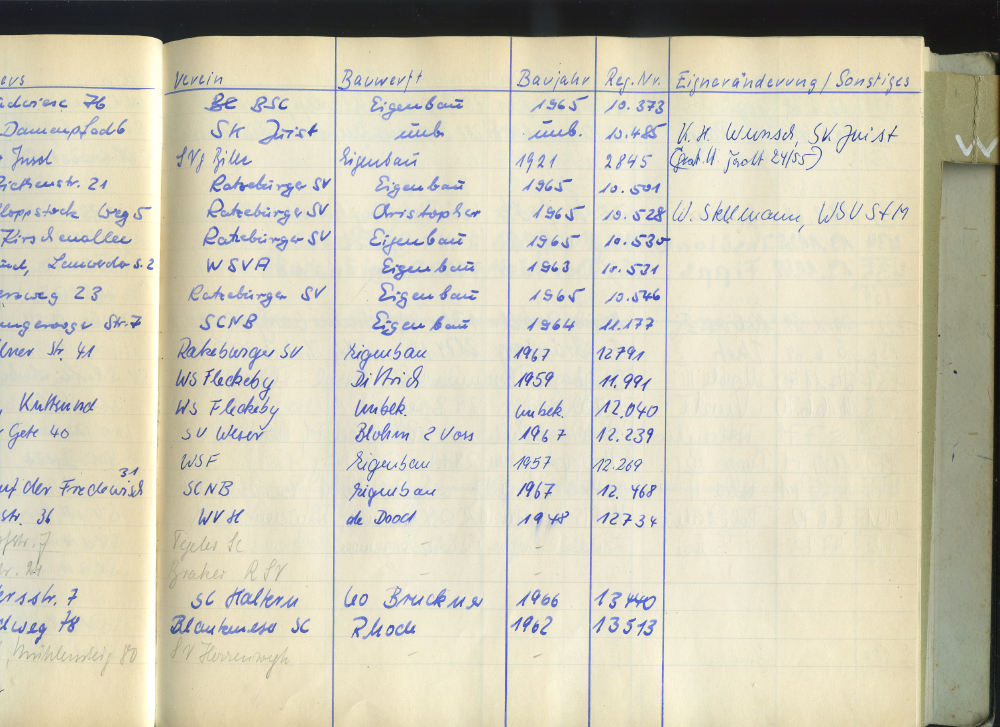 Verein Bauwerft Baujahr Reg.Nr. Eigneränderung/Sonstiges
76 BSC Eigenbau 1965 10.373
Damenpfad 6 SK Juist unb. unb. 10.485 K. H. Wunsch, SK Juist
Insel Eigenbau 1921 2845
str. 21 Ratzeburger SV Eigenbau 1965 10.501
Weg 5 Ratzeburger SV Christopher 1965 10.528 W. Stellmann, WSVStM
Kirschenallee Ratzeburger SV Eigenbau 1965 10.530
s. 2 WSVA Eigenbau 1963 10.531
weg 23 Ratzeburger SV Eigenbau 1965 10.546
Str. 7 SCNB Eigenbau 1964 11.177
Str. 41 Ratzeburger SV Eigenbau 1967 12791
WS Fleckeby Dittrich 1959 11.991
WS Fleckeby Unbek. unbek. 12.040
40 SV Weser Blohm & Voss 1967 12.239
WSF Eigenbau 1957 12.269
31
auf der SCNB Eigenbau 1967 12.468
str. 36 WVH de Dood 1948 12734
str. 7 – –
21 – –
str. 7 SC Haltern Leo Bruckner 1966 13440
weg 78 Blankeneser SC Rhode 1962 13513
80 SV – –